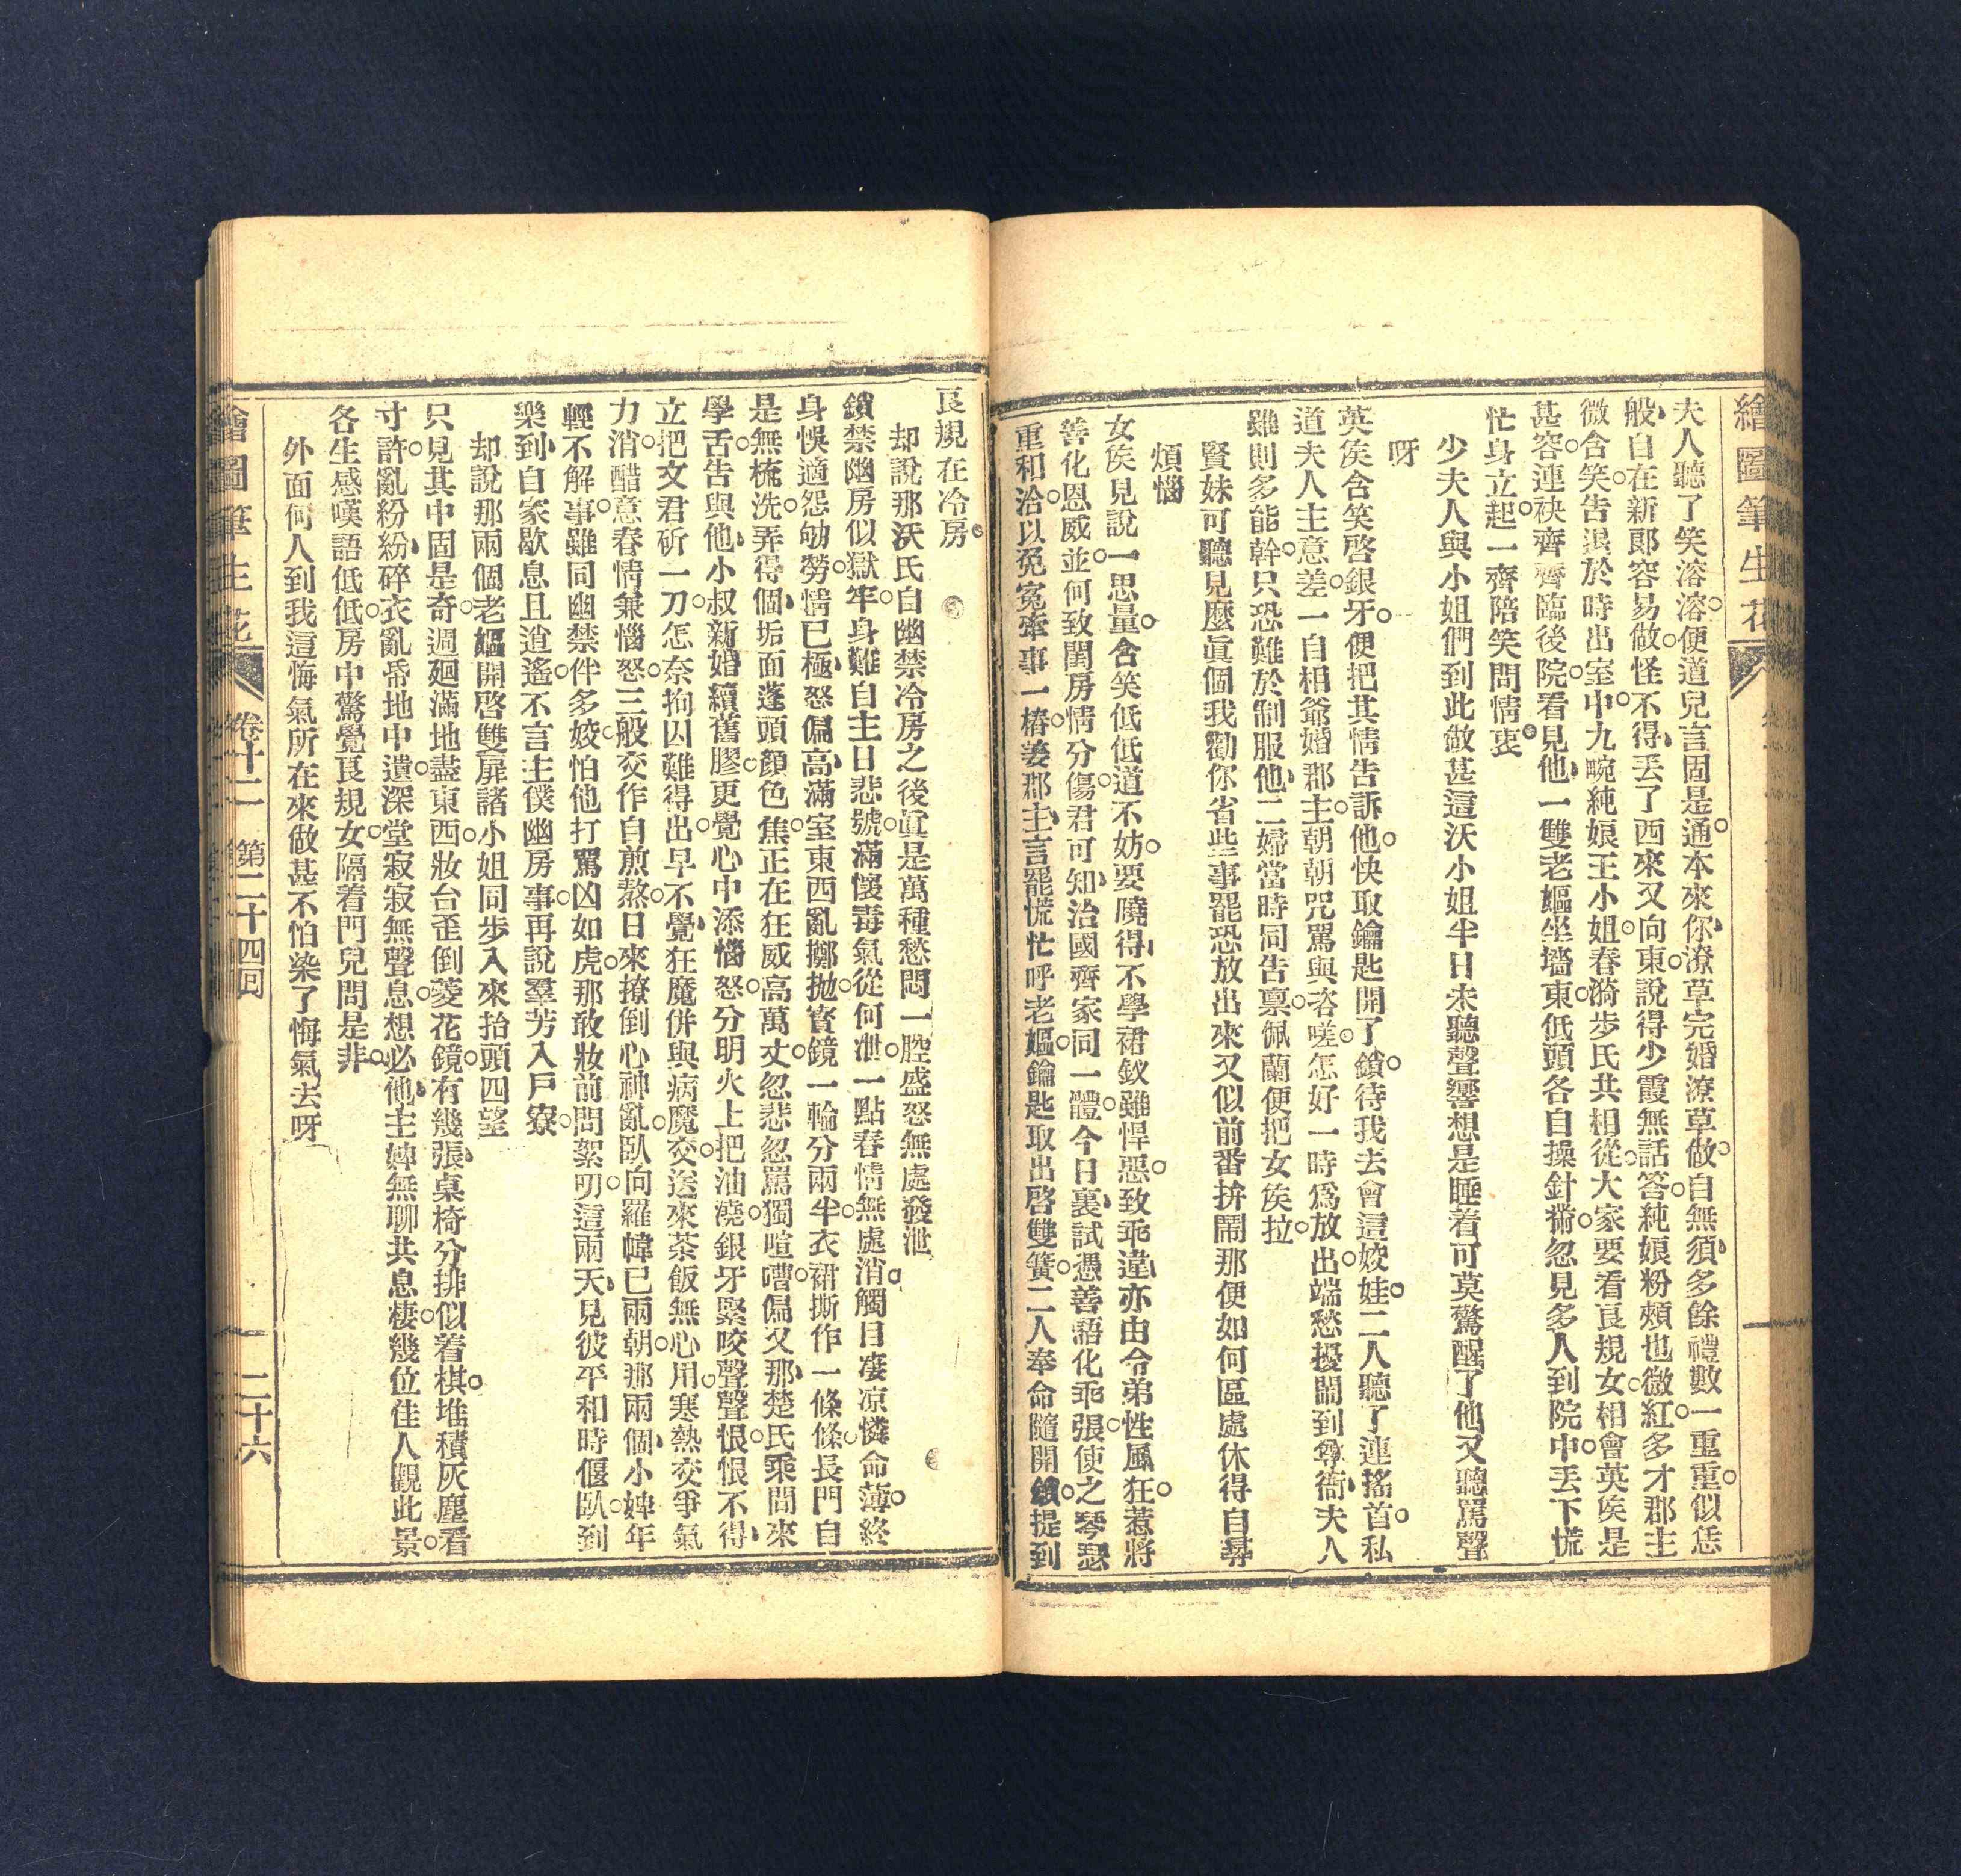 繪圖筆生花
夫人聽了笑溶溶便道兒言固是通本來你潦草完婚潦草做自無須多餘禮數一重重似恁
般自在新郎容易做怪不得丟了西來又向東說得少霞無話答純娘粉頰也微紅多才郡主
微含笑告退於時出室中九畹純娘王小姐春漪步氏共相從大家要看艮規女相會英侯是
甚容連袂齊齊臨後院看見他一雙老嫗坐墻東低頭各自操針黹忽見多人到院中丟下慌
忙身立起一齊陪笑問情衷
少夫人與小姐們到此做甚這沃小姐半日未聽聲響想是睡着可莫驚醒了他又聽罵聲
呀
英侯含笑啓銀牙便把其情告訴他快取鑰匙開了鎖待我去會這姣娃二人聽了連搖首私
道夫人主意差一自相爺婚郡主朝朝咒罵與咨嗟怎好一時爲放出端愁擾鬧到尊衙夫人
雖則多能幹只恐難於制服他二婦當時同告禀佩蘭便把女侯拉
賢妹可聽見麼眞個我勸你省些事罷恐放出來又似前番拚鬧那便如何區處休得自尋
煩惱
女侯見說一思量含笑低低道不妨要曉得不學裙釵雖悍惡致乖違亦由令弟性風狂惹將
善化恩威並何致閨房情分傷君可知治國齊家同一體今日裏試憑善語化乖張使之琴瑟
重和洽以免冤牽事一樁姜郡主言罷慌忙呼老嫗鑰匙取出啓雙簧二人奉命隨開鎖提到
艮規在冷房
却說那沃氏自幽禁冷房之後眞是萬種愁悶一腔盛怒無處發泄
鎖禁幽房似獄牢身難自主日悲號滿懷毒氣從何泄一點春情無處消觸目凄凉憐命薄終
身悞適怨劬勞情已極怒偏高滿室東西亂擲抛寳鏡一輪分兩半衣裙撕作一條條長門自
是無梳洗弄得個垢面蓬頭顏色焦正在狂威高萬丈忽悲忽罵獨喧嘈偏又那楚氏乘閒來
學舌告與他小叔新婚續舊膠更覺心中添惱怒分明火上把油澆銀牙緊咬聲聲恨恨不得
立把文君斫一刀怎奈拘囚難得出早不覺狂魔併與病魔交送來茶飯無心用寒熱交爭氣
力消醋意春情兼惱怒三般交作自煎熬日來撩倒心神亂臥向羅幃已兩朝那兩個小婢年
輕不解事雖同幽禁伴多姣怕他打罵凶如虎那敢妝前問絮叨這兩天見彼平和時偃臥到
樂到自家歇息且逍遙不言主僕幽房事再說羣芳入戶寮
却說那兩個老嫗開啓雙扉諸小姐同步入來抬頭四望
只見其中固是奇週廻滿地盡東西妝台歪倒菱花鏡有幾張桌椅分排似着棋堆積灰塵看
寸許亂紛紛碎衣亂帋地中遺深堂寂寂無聲息想必他主婢無聊共息棲幾位佳人觀此景
各生感嘆語低低房中驚覺艮規女隔着門兒問是非
外面何人到我這悔氣所在來做甚不怕染了悔氣去呀
繪圖筆生花 卷十二 第二十四回 二十六